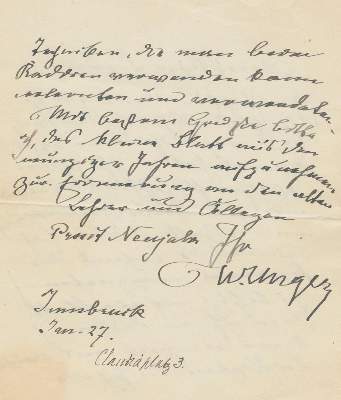 Techniken, die man beim
Radieren verwenden kann
erlernten und verwendeten.
Mit bestem Gruße bitte
ich, das kleine Blatt aus den
neunziger Jahren aufzunehmen
zur Erinnerung an den alten
Lehrer und Collegen
Prosit Neujahr Ihr
W Unger
Innsbruck
Jan. 27.
Claudiaplatz 3.